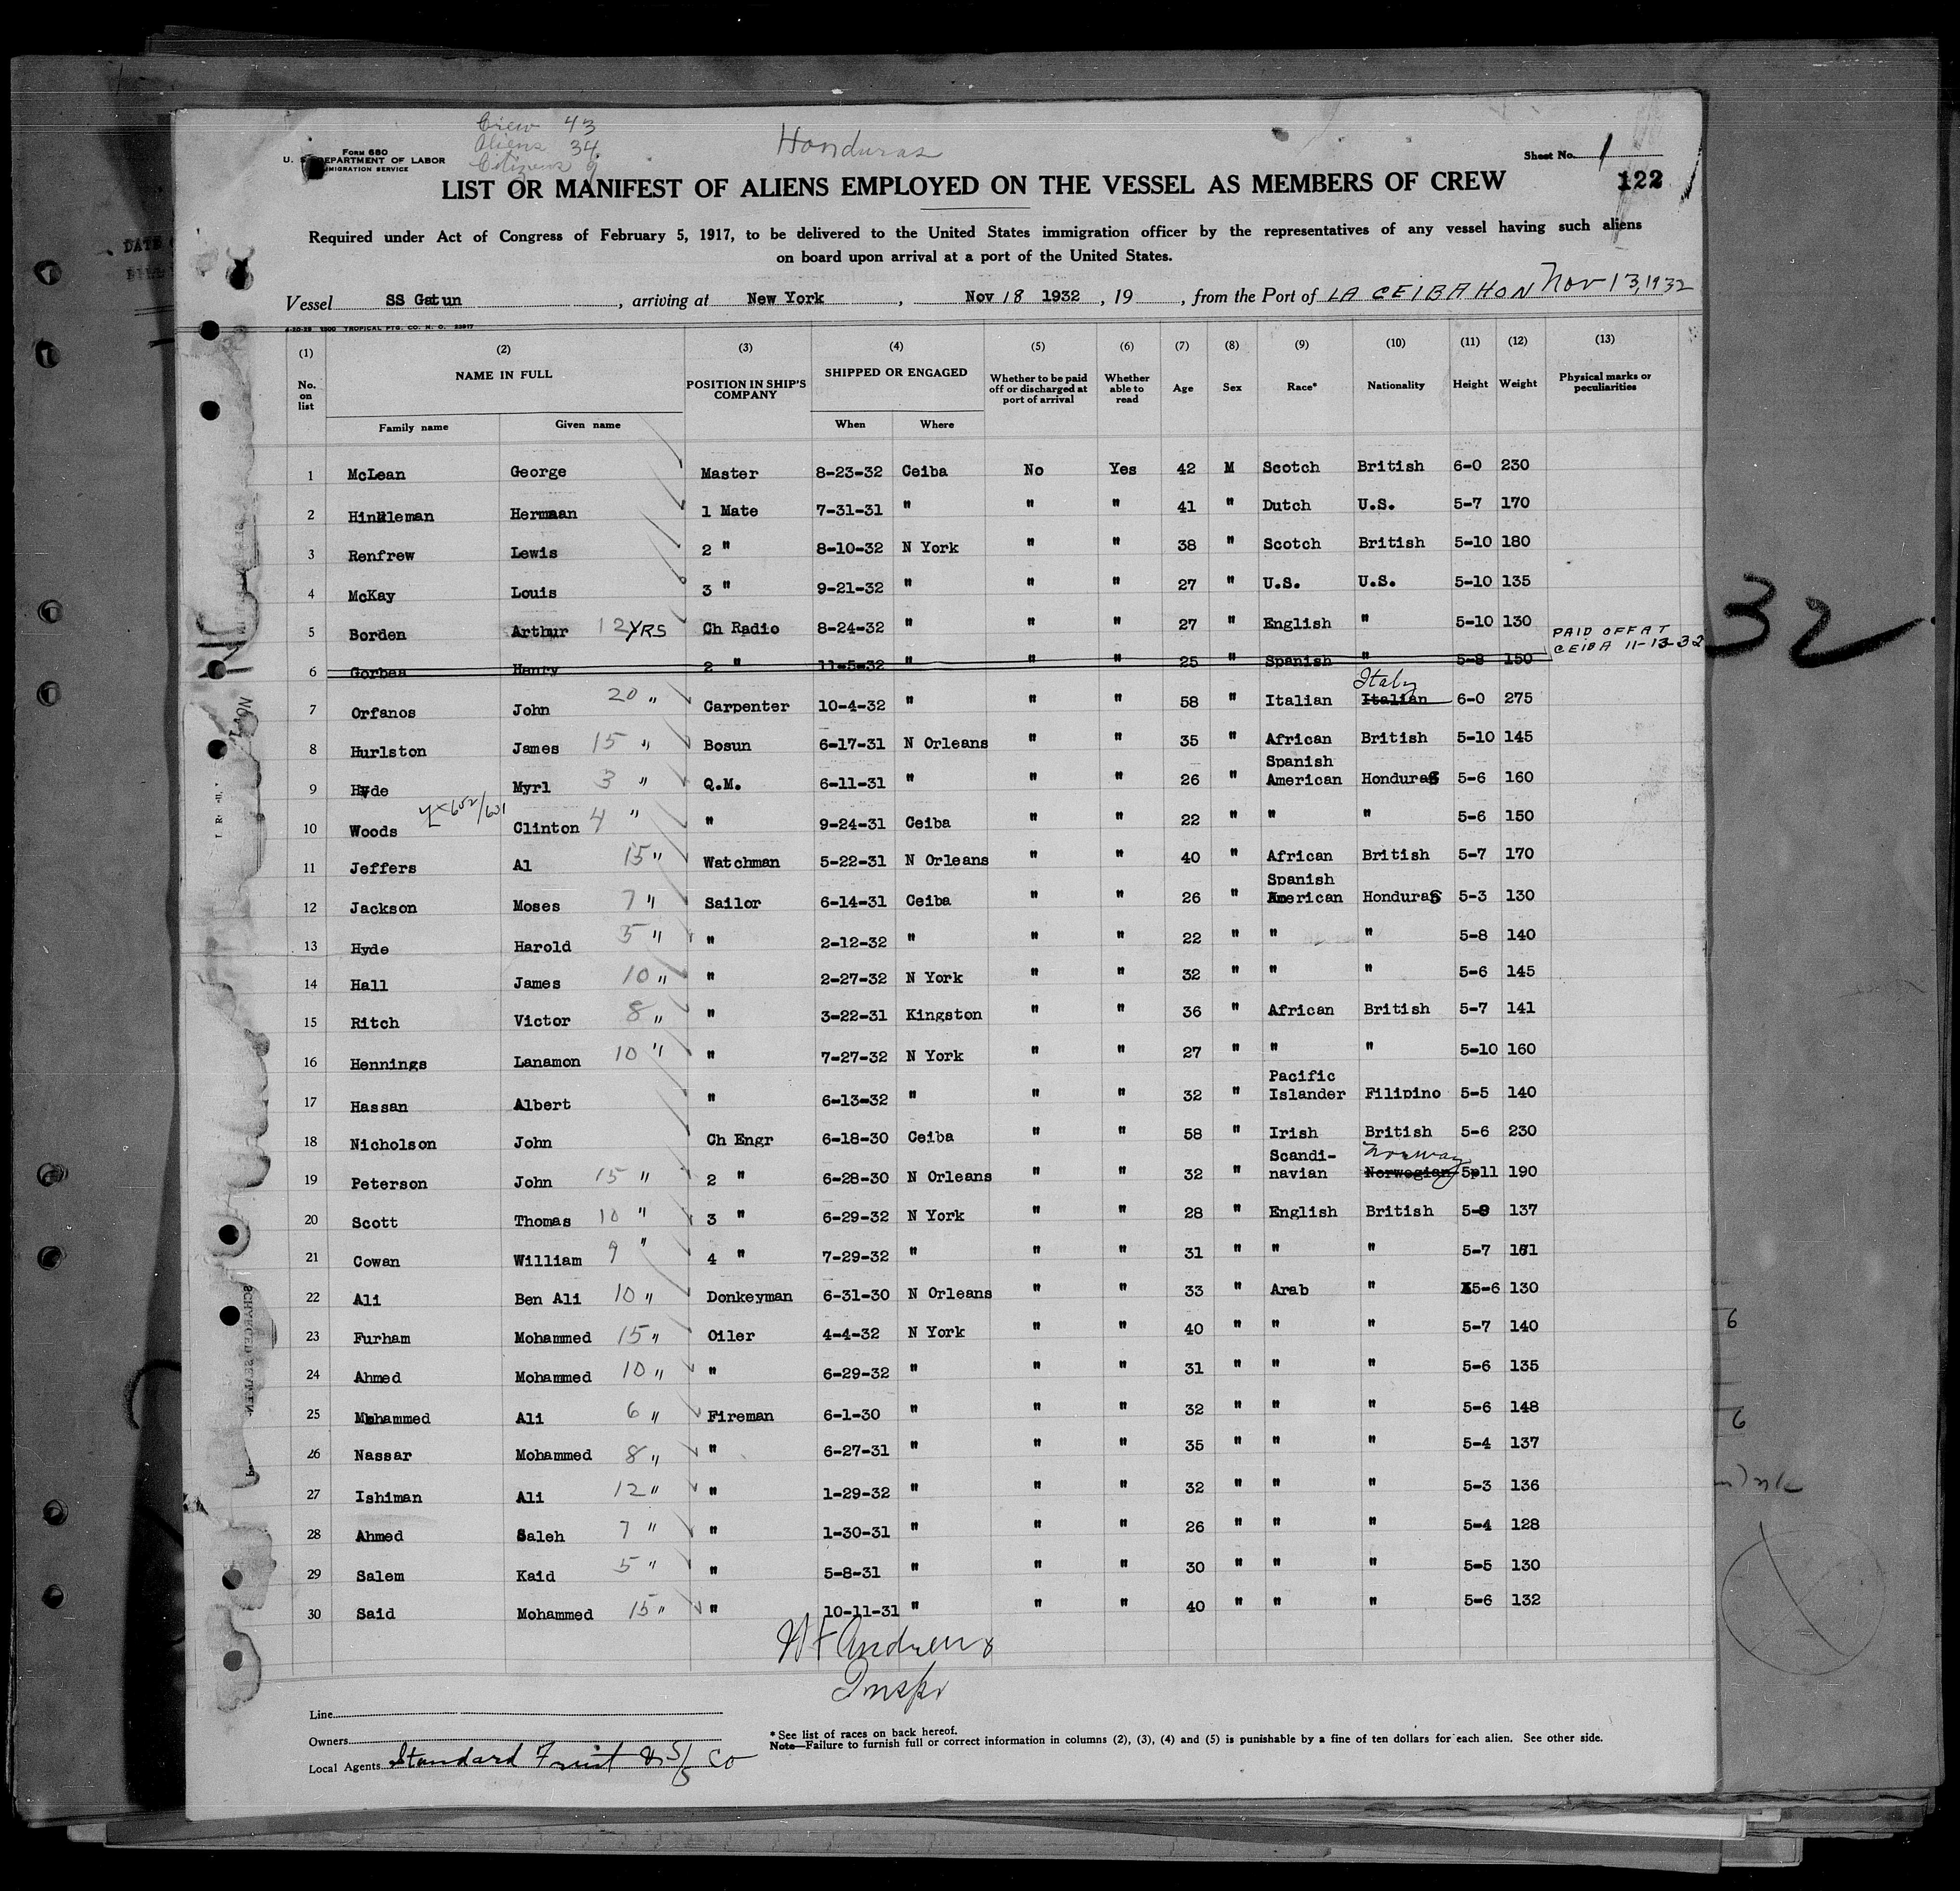 Crew 43
Aliens 34
Citizens 9
Honduras
Form 680
U. S. DEPARTMENT OF LABOR
IMMIGRATION SERVICE
Sheet No. 1
122
LIST OR MANIFEST OF ALIENS EMPLOYED ON THE VESSEL AS MEMBERS OF CREW
Required under Act of Congress of February 5, 1917, to be delivered to the United States immigration officer by the representatives of any vessel having such aliens
on board upon arrival at a port of the United States.
Vessel SS Gatun, arriving at New York, Nov 18 1932, 19, from the Port of LA CEIBA HON Nov 13, 1932
4-20-29 1500 TROPICAL PTG. CO. N. O. 23817
(1) (2) (3) (4) (5) (6) (7) (8) (9) (10) (11) (12) (13)
No. on list NAME IN FULL Family name Given name POSITION IN SHIP'S COMPANY SHIPPED OR ENGAGED When Where Whether to be paid off or discharged at port of arrival Whether able to read Age Sex Race* Nationality Height Weight Physical marks or peculiarities
1 McLean George Master 8-23-32 Ceiba No Yes 42 M Scotch British 6-0 230
2 Hinkleman Herman 1 Mate 7-31-31 " " " 41 " Dutch U.S. 5-7 170
3 Renfrew Lewis 2 " 8-10-32 N York " " 38 " Scotch British 5-10 180
4 McKay Louis 3 " 9-21-32 " " " 27 " U.S. U.S. 5-10 135
5 Borden Arthur 12 YRS Ch Radio 8-24-32 " " " 27 " English " 5-10 130
6 Gorbea Henry 2 " 11-5-32 " " " 25 " Spanish " 5-8 150 PAID OFF AT CEIBA 11-13-32
7 Orfanos John 20 " Carpenter 10-4-32 " " " 58 " Italian Italian Italy 6-0 275
8 Hurlston James 15 " Bosun 6-17-31 N Orleans " " 35 " African British 5-10 145
9 Hyde Myrl 3 " Q.M. 6-11-31 " " " 26 " Spanish American Honduras 5-6 160
10 Woods Clinton 4 " " 9-24-31 Ceiba " " 22 " " " 5-6 150
11 Jeffers Al 15 " Watchman 5-22-31 N Orleans " " 40 " African British 5-7 170
12 Jackson Moses 7 " Sailor 6-14-31 Ceiba " " 26 " Spanish American Honduras 5-3 130
13 Hyde Harold 5 " " 2-12-32 " " " 22 " " " 5-8 140
14 Hall James 10 " " 2-27-32 N York " " 32 " " " 5-6 145
15 Ritch Victor 8 " " 3-22-31 Kingston " " 36 " African British 5-7 141
16 Hennings Lanamon 10 " " 7-27-32 N York " " 27 " " " 5-10 160
17 Hassan Albert " 6-13-32 " " " 32 " Pacific Islander Filipino 5-5 140
18 Nicholson John Ch Engr 6-18-30 Ceiba " " 58 " Irish British 5-6 230
19 Peterson John 15 " 2 " 6-28-30 N Orleans " " 32 " Scandi-navian Norwegian Norway 5-11 190
20 Scott Thomas 10 " 3 " 6-29-32 N York " " 28 " English British 5-9 137
21 Cowan William 9 " 4 " 7-29-32 " " " 31 " " " 5-7
22 Ali Ben Ali 10 " Donkeyman 6-31-30 N Orleans " " 33 " Arab " 5-6 130
23 Furham Mohammed 15 " Oiler 4-4-32 N York " " 40 " " " 5-7 140
24 Ahmed Mohammed 10 " " 6-29-32 " " " 31 " " " 5-6 135
25 Mohammed Ali 6 " Fireman 6-1-30 " " " 32 " " " 5-6 148
26 Nassar Mohammed 8 " " 6-27-31 " " " 35 " " " 5-4 137
27 Ishiman Ali 12 " " 1-29-32 " " " 32 " " " 5-3 136
28 Ahmed Saleh 7 " " 1-30-31 " " " 26 " " " 5-4 128
29 Salem Kaid 5 " " 5-8-31 " " " 30 " " " 5-5 130
30 Said Mohammed 15 " " 10-11-31 " " " 40 " " " 5-6 132
Andrews
Inspr
Line
Owners
Local Agents Standard Fruit & S/S Co
* See list of races on back hereof.
Note—Failure to furnish full or correct information in columns (2), (3), (4) and (5) is punishable by a fine of ten dollars for each alien. See other side.
32
6
6